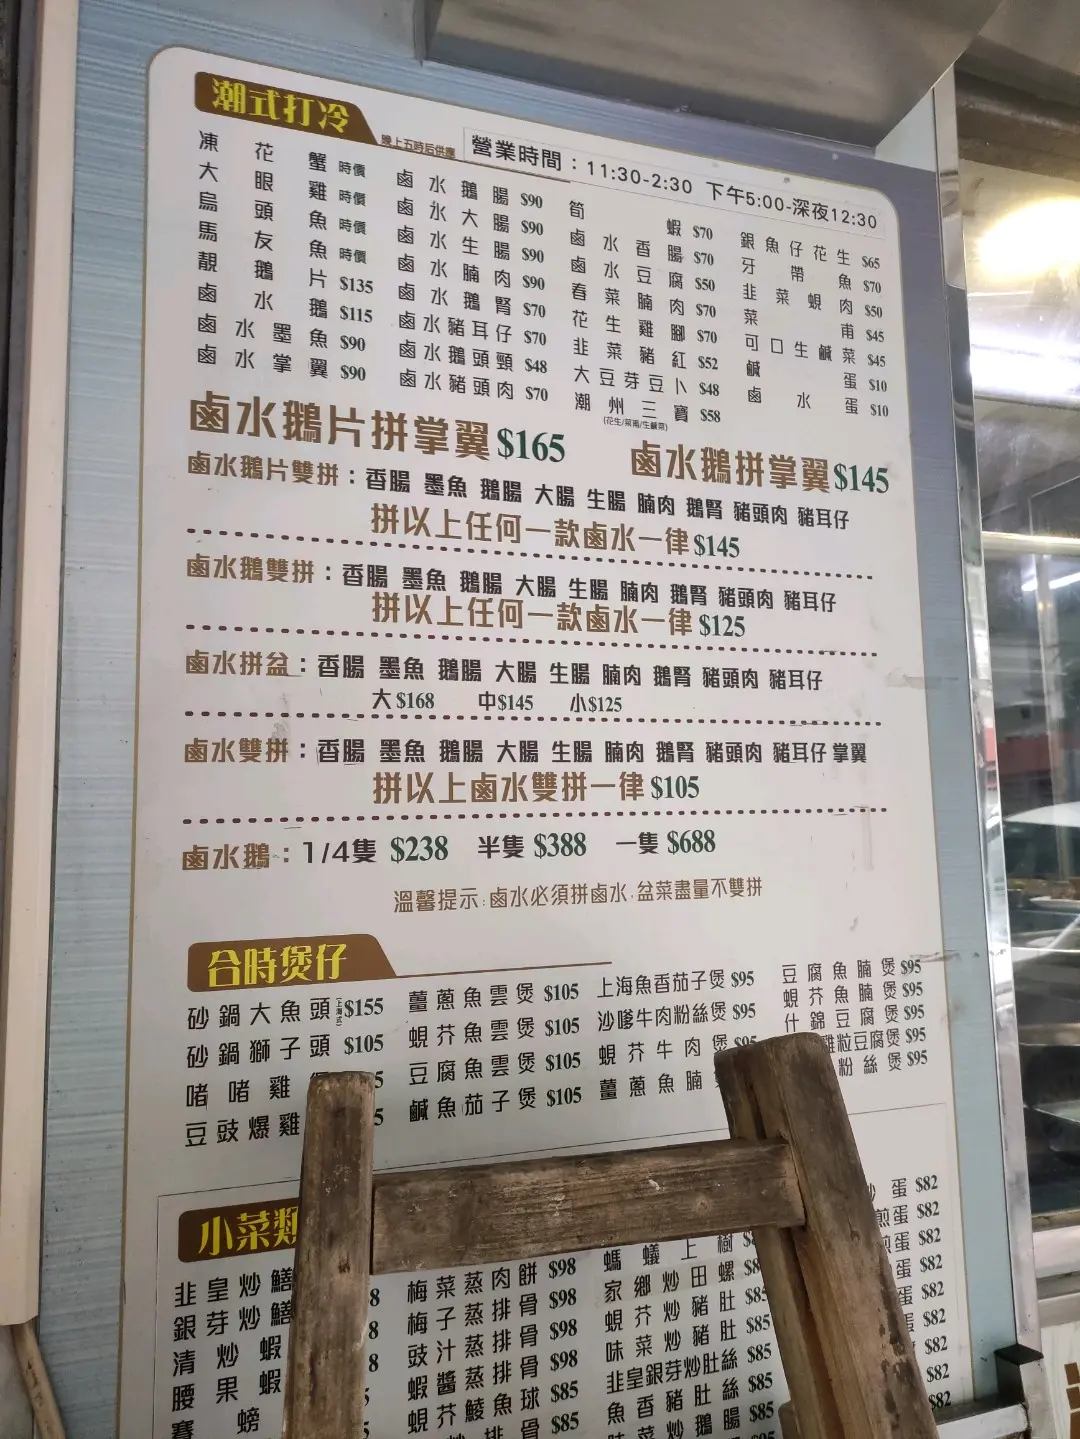 潮式打冷
晚上五時后供應
營業時間：11:30-2:30 下午5:00-深夜12:30
凍花蟹 時價
大眼雞 時價
烏頭魚 時價
馬友魚 時價
靚鵝片 $135
鹵水鵝 $115
鹵水墨魚 $90
鹵水掌翼 $90
鹵水鵝腸 $90
鹵水大腸 $90
鹵水生腸 $90
鹵水腩肉 $90
鹵水鵝腎 $70
鹵水豬耳仔 $70
鹵水鵝頭頸 $48
鹵水豬頭肉 $70
筍蝦 $70
鹵水香腸 $70
鹵水豆腐 $50
春菜腩肉 $70
花生雞腳 $70
韭菜豬紅 $52
大豆芽豆卜 $48
潮州三寶 $58
(花生/菜甫/生鹹菜)
銀魚仔花生 $65
牙帶魚 $70
韭菜蜆肉 $50
菜甫 $45
可口生鹹菜 $45
鹹蛋 $10
鹵水蛋 $10
鹵水鵝片拼掌翼 $165
鹵水鵝拼掌翼 $145
鹵水鵝片雙拼：香腸 墨魚 鵝腸 大腸 生腸 腩肉 鵝腎 豬頭肉 豬耳仔
拼以上任何一款鹵水一律 $145
鹵水鵝雙拼：香腸 墨魚 鵝腸 大腸 生腸 腩肉 鵝腎 豬頭肉 豬耳仔
拼以上任何一款鹵水一律 $125
鹵水拼盆：香腸 墨魚 鵝腸 大腸 生腸 腩肉 鵝腎 豬頭肉 豬耳仔
大 $168 中 $145 小 $125
鹵水雙拼：香腸 墨魚 鵝腸 大腸 生腸 腩肉 鵝腎 豬頭肉 豬耳仔 掌翼
拼以上鹵水雙拼一律 $105
鹵水鵝：1/4隻 $238 半隻 $388 一隻 $688
溫馨提示:鹵水必須拼鹵水,盆菜盡量不雙拼
合時煲仔
砂鍋大魚頭(上海式) $155
砂鍋獅子頭 $105
啫啫雞
豆豉爆雞
薑蔥魚雲煲 $105
蜆芥魚雲煲 $105
豆腐魚雲煲 $105
鹹魚茄子煲 $105
上海魚香茄子煲 $95
沙嗲牛肉粉絲煲 $95
蜆芥牛肉煲 $95
薑蔥魚腩
豆腐魚腩煲 $95
蜆芥魚腩煲 $95
什錦豆腐煲 $95
雞粒豆腐煲 $95
粉絲煲 $95
小菜類
韭皇炒鱔
銀芽炒鱔
清炒蝦
腰果蝦
賽螃
梅菜蒸肉餅 $98
梅子蒸排骨 $98
豉汁蒸排骨 $98
蝦醬蒸排骨 $98
蜆芥鯪魚球 $85
排骨 $85
螞蟻上樹
家鄉炒田螺
蜆芥炒豬肚 $85
味菜炒豬肚 $85
韭皇銀芽炒肚絲 $85
魚香豬肚絲 $85
味菜炒鵝腸 $85
蛋 $82
煎蛋 $82
煎蛋 $82
蛋 $82
蛋 $82
蛋 $82
蛋 $82
$82
$82